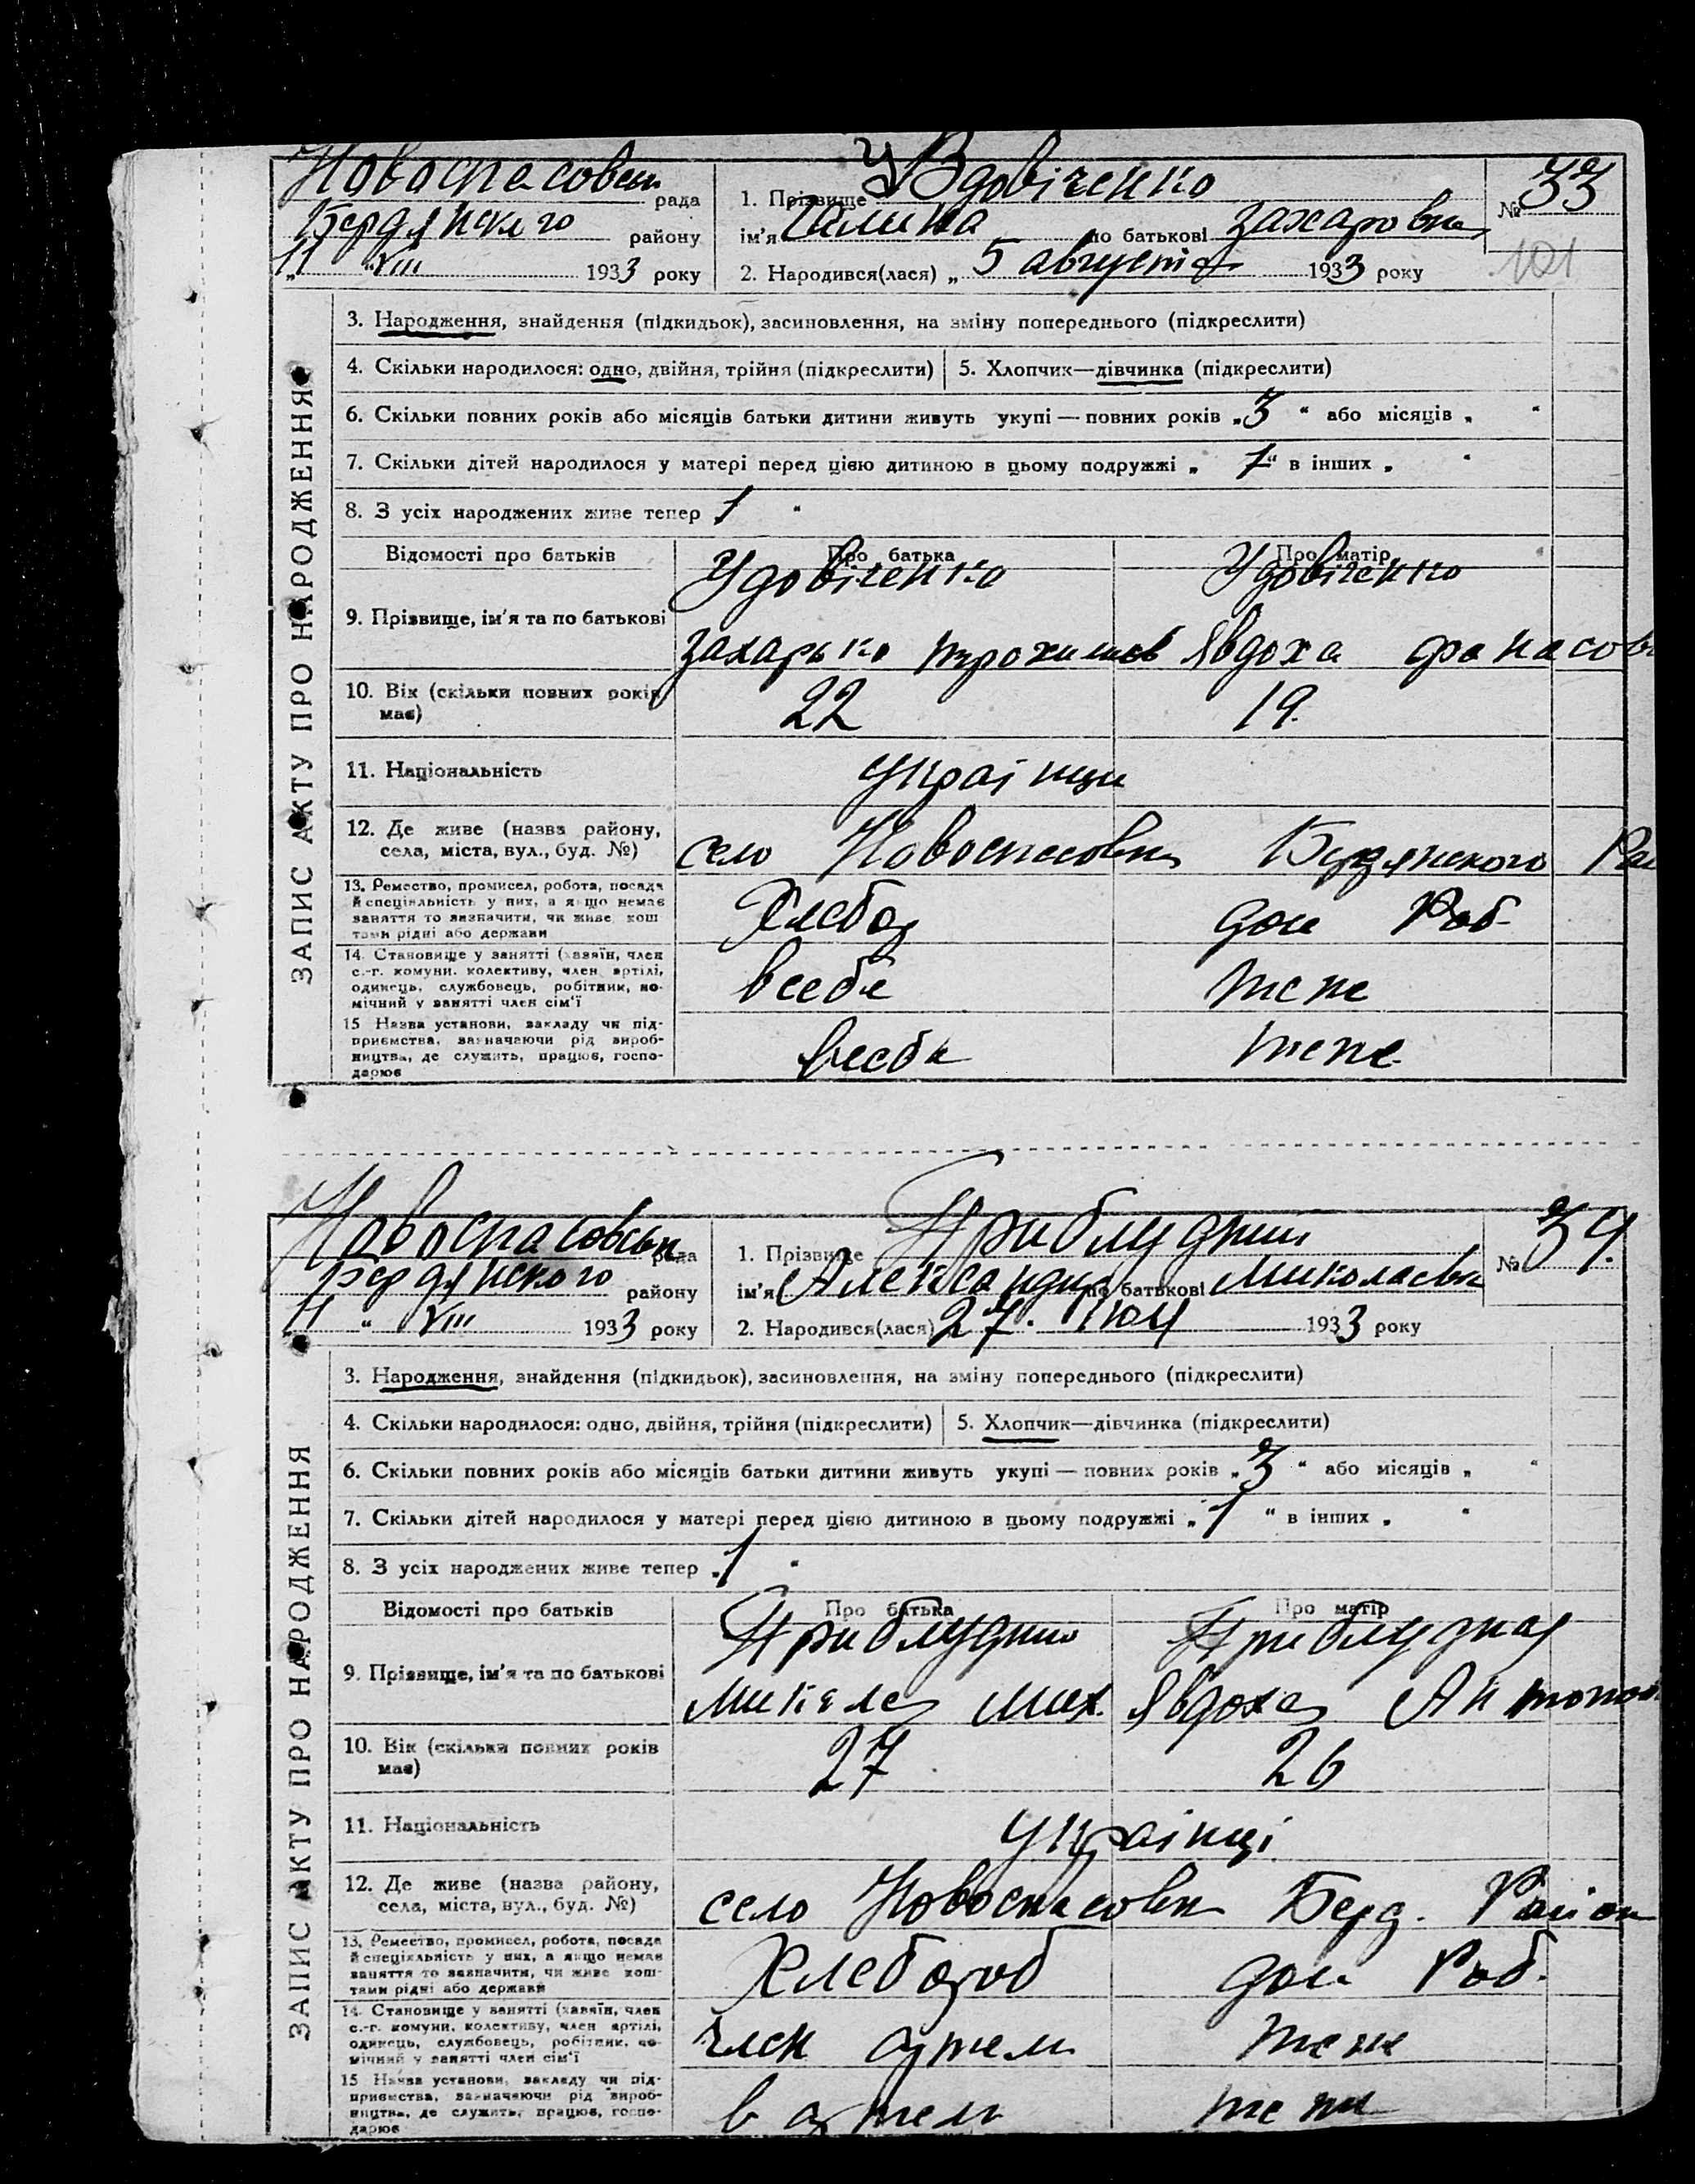 Новоспасовськ рада
Бердянского району
„11 “ VIII 1933 року
1. Прізвище Удовіченко
ім'я Галина по батькові Захаровна
2. Народився(лася) „ 5 августа 1933 року
№ 33
101
ЗАПИС АКТУ ПРО НАРОДЖЕННЯ
3. Народження, знайдення (підкидьок), засиновлення, на зміну попереднього (підкреслити)
4. Скільки народилося: одно, двійня, трійня (підкреслити) 5. Хлопчик—дівчинка (підкреслити)
6. Скільки повних років або місяців батьки дитини живуть укупі — повних років „3 “ або місяців „ “
7. Скільки дітей народилося у матері перед цією дитиною в цьому подружжі „ 1“ в інших „ “
8. З усіх народжених живе тепер 1 “
Відомості про батьків Про батька Про матір
Удовіченко Удовіченко
9. Прізвище, ім'я та по батькові
Захарько Трохимов Явдоха Фанасов
10. Вік (скільки повних років 22 19.
має)
11. Національність Українци
12. Де живе (назва району,
села, міста, вул., буд. №) село Новоспасовка Бердянского Рай
13. Ремество, промисел, робота, посада
й спеціяльність у них, а якщо немає
заняття то зазначити, чи живе кош
тами рідні або держави
Хлебор дом Роб-
14. Становище у занятті (хазяїн, член
с.-г. комуни, колективу, член артілі,
одинець, службовець, робітник, по-
мічний у занятті член сім'ї
всебе теже
15 Назва установи, закладу чи під-
приємства, зазначаючи рід вироб-
ництва, де служить, працює, госпо-
дарює
теже
Новоспасовськ рада
Бердянского району
11 “ VIII 1933 року
1. Прізвище Приблудний
ім'я Александр по батькові Миколаевич
2. Народився(лася) 27. июл 1933 року
№ 34.
ЗАПИС АКТУ ПРО НАРОДЖЕННЯ
3. Народження, знайдення (підкидьок), засиновлення, на зміну попереднього (підкреслити)
4. Скільки народилося: одно, двійня, трійня (підкреслити) 5. Хлопчик—дівчинка (підкреслити)
6. Скільки повних років або місяців батьки дитини живуть укупі — повних років „3 “ або місяців „ “
7. Скільки дітей народилося у матері перед цією дитиною в цьому подружжі „1 “ в інших „ “
8. З усіх народжених живе тепер „1 “
Відомості про батьків Про батька Про матір
Приблудний Приблудная
9. Прізвище, ім'я та по батькові
Микола Мих. Явдоха Антонов
10. Вік (скільки повних років 27 26
має)
11. Національність Українці
12. Де живе (назва району,
села, міста, вул., буд. №) село Новоспасовка Берд. Район
13. Ремество, промисел, робота, посада
й спеціяльність у них, а якщо немає
заняття то зазначити, чи живе кош-
тами рідні або держави
Хлебороб дом Роб.
14. Становище у занятті (хазяїн, член
с.-г. комуни, колективу, член артілі,
одинець, службовець, робітник, по-
мічний у занятті член сім'ї
член артели теже
15 Назва установи, закладу чи під-
приємства, зазначаючи рід вироб-
ництва, де служить, працює, госпо-
дарює
в артели теже